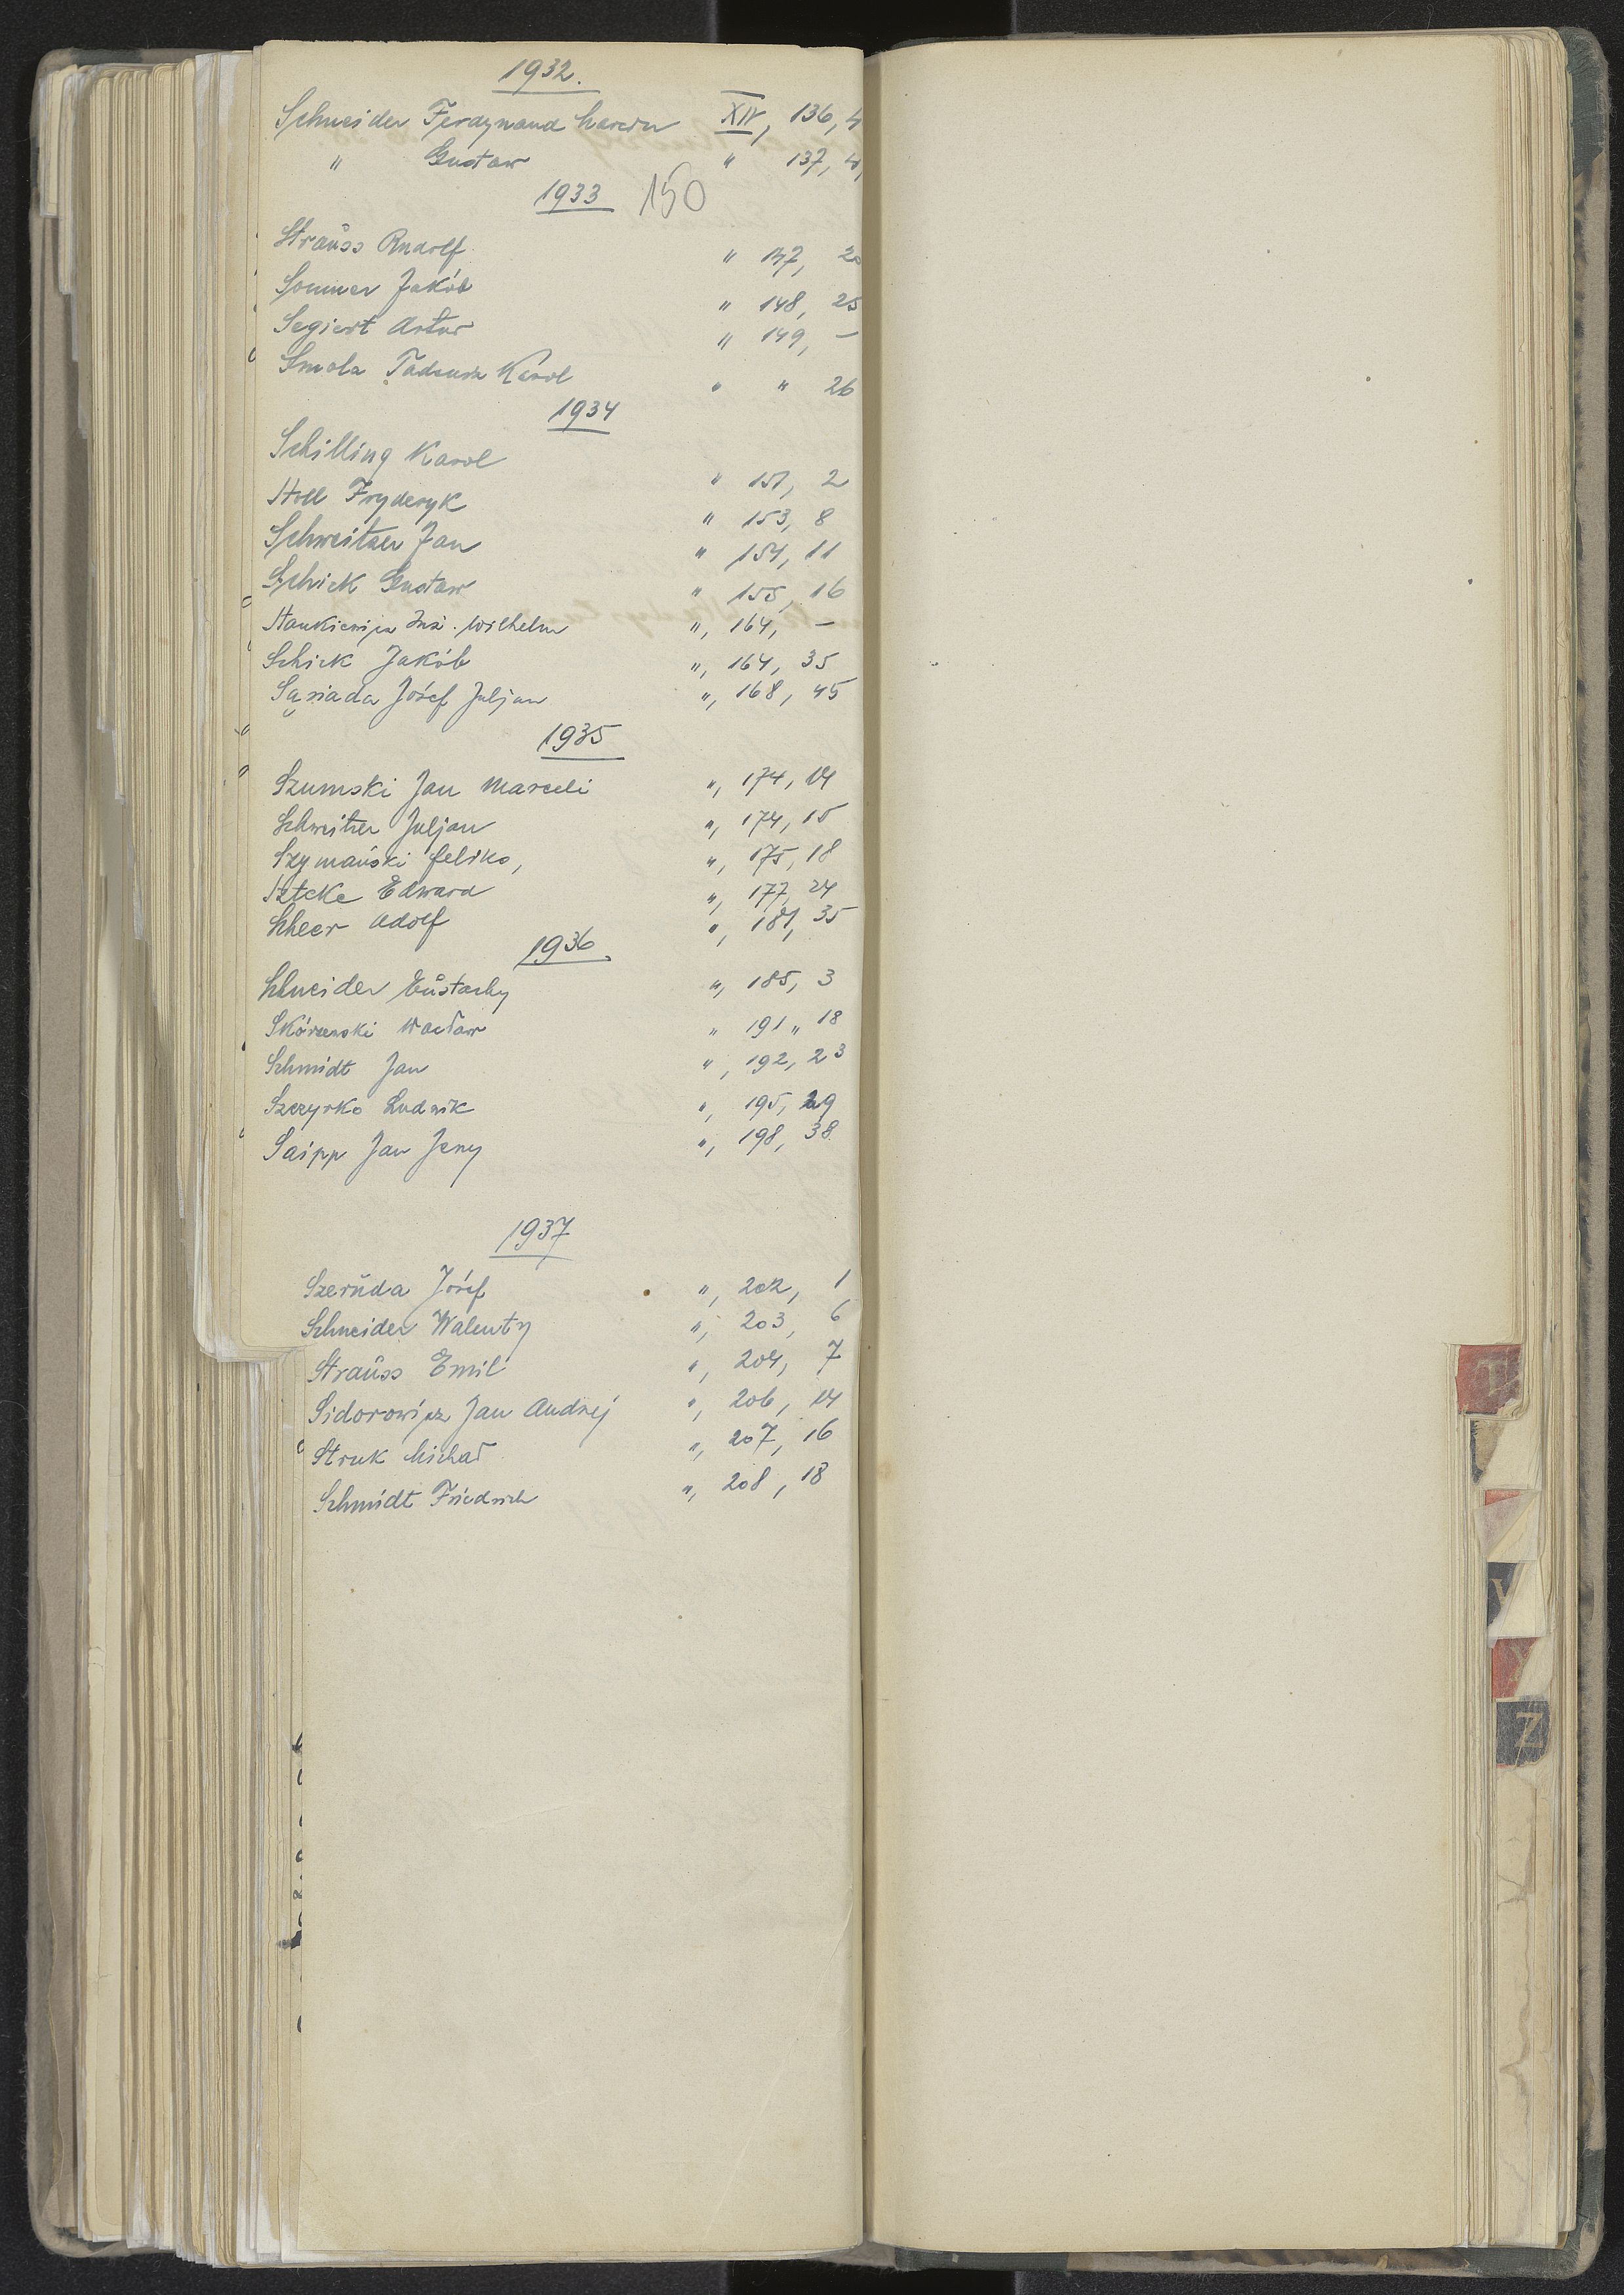 1932.
Schneider Ferdynand Marcin XIV, 136, 4
" Gustaw " 137, 4,
1933 150
Strauss Rudolf " 147, 20
Sommer Jakób " 148, 25
Segiert Artur " 149, —
Smola Tadeusz Karol " " 26
1934
Schilling Karol " 151, 2
Stoll Fryderyk " 153, 8
Schweitzer Jan " 154, 11
Schick Gustaw " 155, 16
Stankiewicz Inż. Wilhelm ", 164, —
Schick Jakób ", 164, 35
Sąsiada Józef Juljan ", 168, 45
1935
Szumski Jan Marceli ", 174, 14
Schweitzer Juljan ", 174, 15
Szymański Feliks, ", 175, 18
Edward ", 177, 24
Scheer Adolf ", 181, 35
1936.
Schneider Eustachy ", 185, 3
Skórzewski Wacław " 191 " 18
Schmidt Jan ", 192, 23
Szczyrko Ludwik ", 195, 29
Saipp Jan Jerzy ", 198, 38.
1937
Szeruda Józef ", 202, 1
Schneider Walenty ", 203, 6
Strauss Emil ", 204, 7
Sidorowicz Jan Andrzej ", 206, 14
Struk Michał ", 207, 16
Schmidt Friedrich ", 208, 18
T
Z